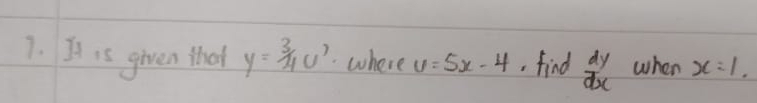 7. It is given that y = 3/4 U⁷. where U = 5x - 4. find dy/dx when x = 1.